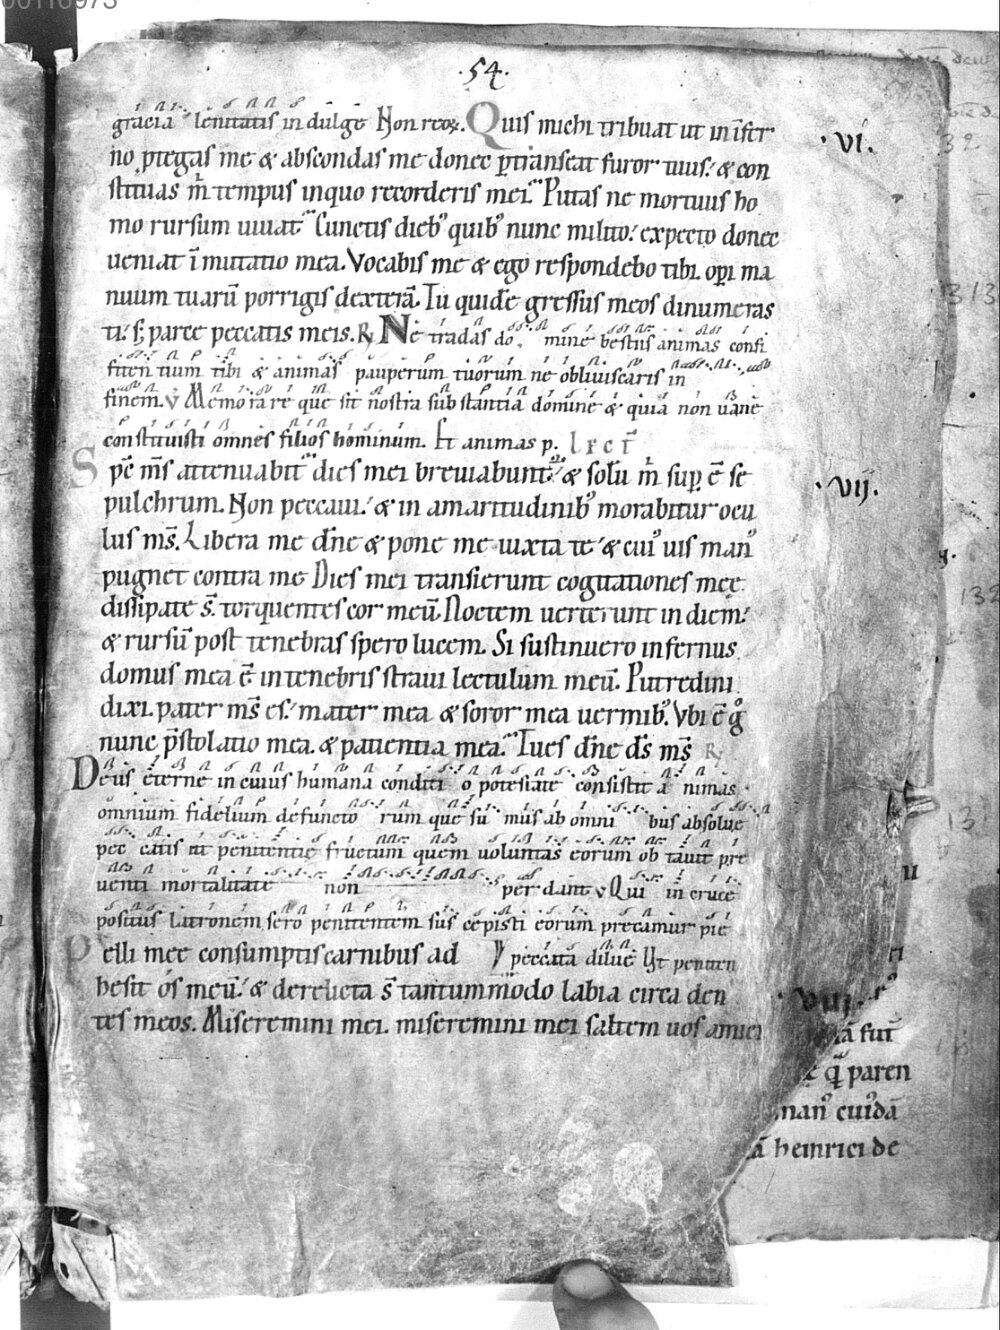 00116973
·54·
gracia lenitatis indulge Non reor. Quis michi tribuat ut in ı̄fer
no ꝓtegas me & abscondas me donec ꝑtranseat furor tuus: & con
stituas m̄ tempus inquo recorderis mei. Putas ne mortuus ho
mo rursum uiuat. Cunctis dieb; quib; nunc milito: expecto donec
ueniat ī mutatio mea. Vocabis me & ego respondebo tibi oꝑi ma
nuum tuarū porrigis dexterā. Tu quidē gressus meos dinumeras
ti: s; parce peccatis meis. ℟ Ne tradas do mine bestiis animas confi
fiten tium tibi & animas pauperum tuorum ne obliuiscaris in
finem. ℣ Memo ra re que sit nostra sub stantia domine & quia non uane
constituisti omnes filios hominum. Et animas p.
Sp̄c m̄s attenuabit dies mei breuiabunt: & solū m̄ suꝑ ē se
pulchrum. Non peccaui: & in amaritudinib; morabitur ocu
lus m̄s. Libera me dn̄e & pone me iuxta te & cui uis man;
pugnet contra me Dies mei transierunt cogitationes meę
dissipate s̄ torquentes cor meū. Noctem uerterunt in diem:
& rursū post tenebras spero lucem. Si sustinuero infernus
domus mea ē in tenebris straui lectulum meū. Putredini
dixi. pater m̄s es: mater mea & soror mea uermib;. Vbi ē ḡ
nunc p̄stolatio mea. & patientia mea. Tu es dn̄e d̄s m̄s ℟
Deus eterne in cuius humana conditi o potestate consistit a nimas
omnium fidelium defuncto rum que su mus ab omni bus absolue
pec catis ut penitentie fructum quem uoluntas eorum ob tauit pre
uenti mortalitate non per dant ℣ Qui in cruce
positus latronem sero penitentem sus cepisti eorum precamur pie
Pelli mee consumptis carnibus ad ℣ peccata dilue Ut peniten
hesit os meū: & derelicta s̄ tantummodo labia circa den
tes meos. Miseremini mei. miseremini mei saltem uos amici
·VI·
·VII·
·VIII·
ā fuit
q̄ paren
man; cuidā
ā heinrici de